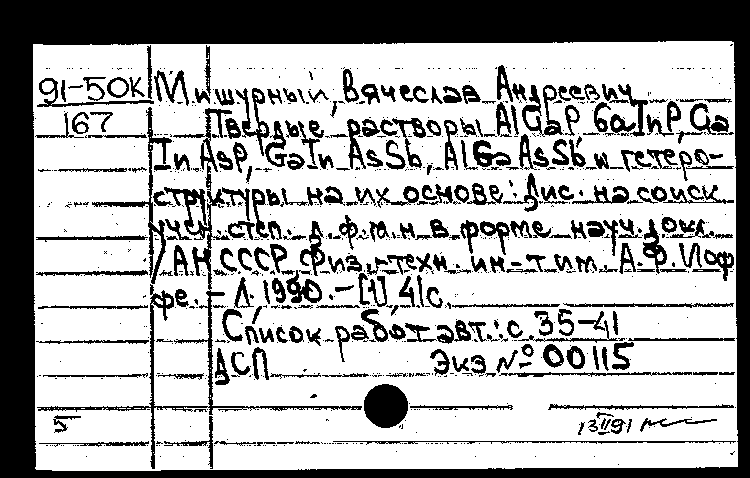 91-50К Мишурный, Вячеслав Андреевич
167 Твердые растворы AlGaP, GaInP, Ga
InAsP, GaInAsSb, AlGaAsSb и гетеро-
структуры на их основе: Дис. на соиск.
учен. степ. д.ф.м.н в форме науч. докл.
/АН СССР, Физ.-техн. ин-т им. А.Ф. Иоф
фе. - Л. 1990. - [1] 41с.
Список работ авт.: с. 35-41
ДСП Экз № 00115
5 13 II 91